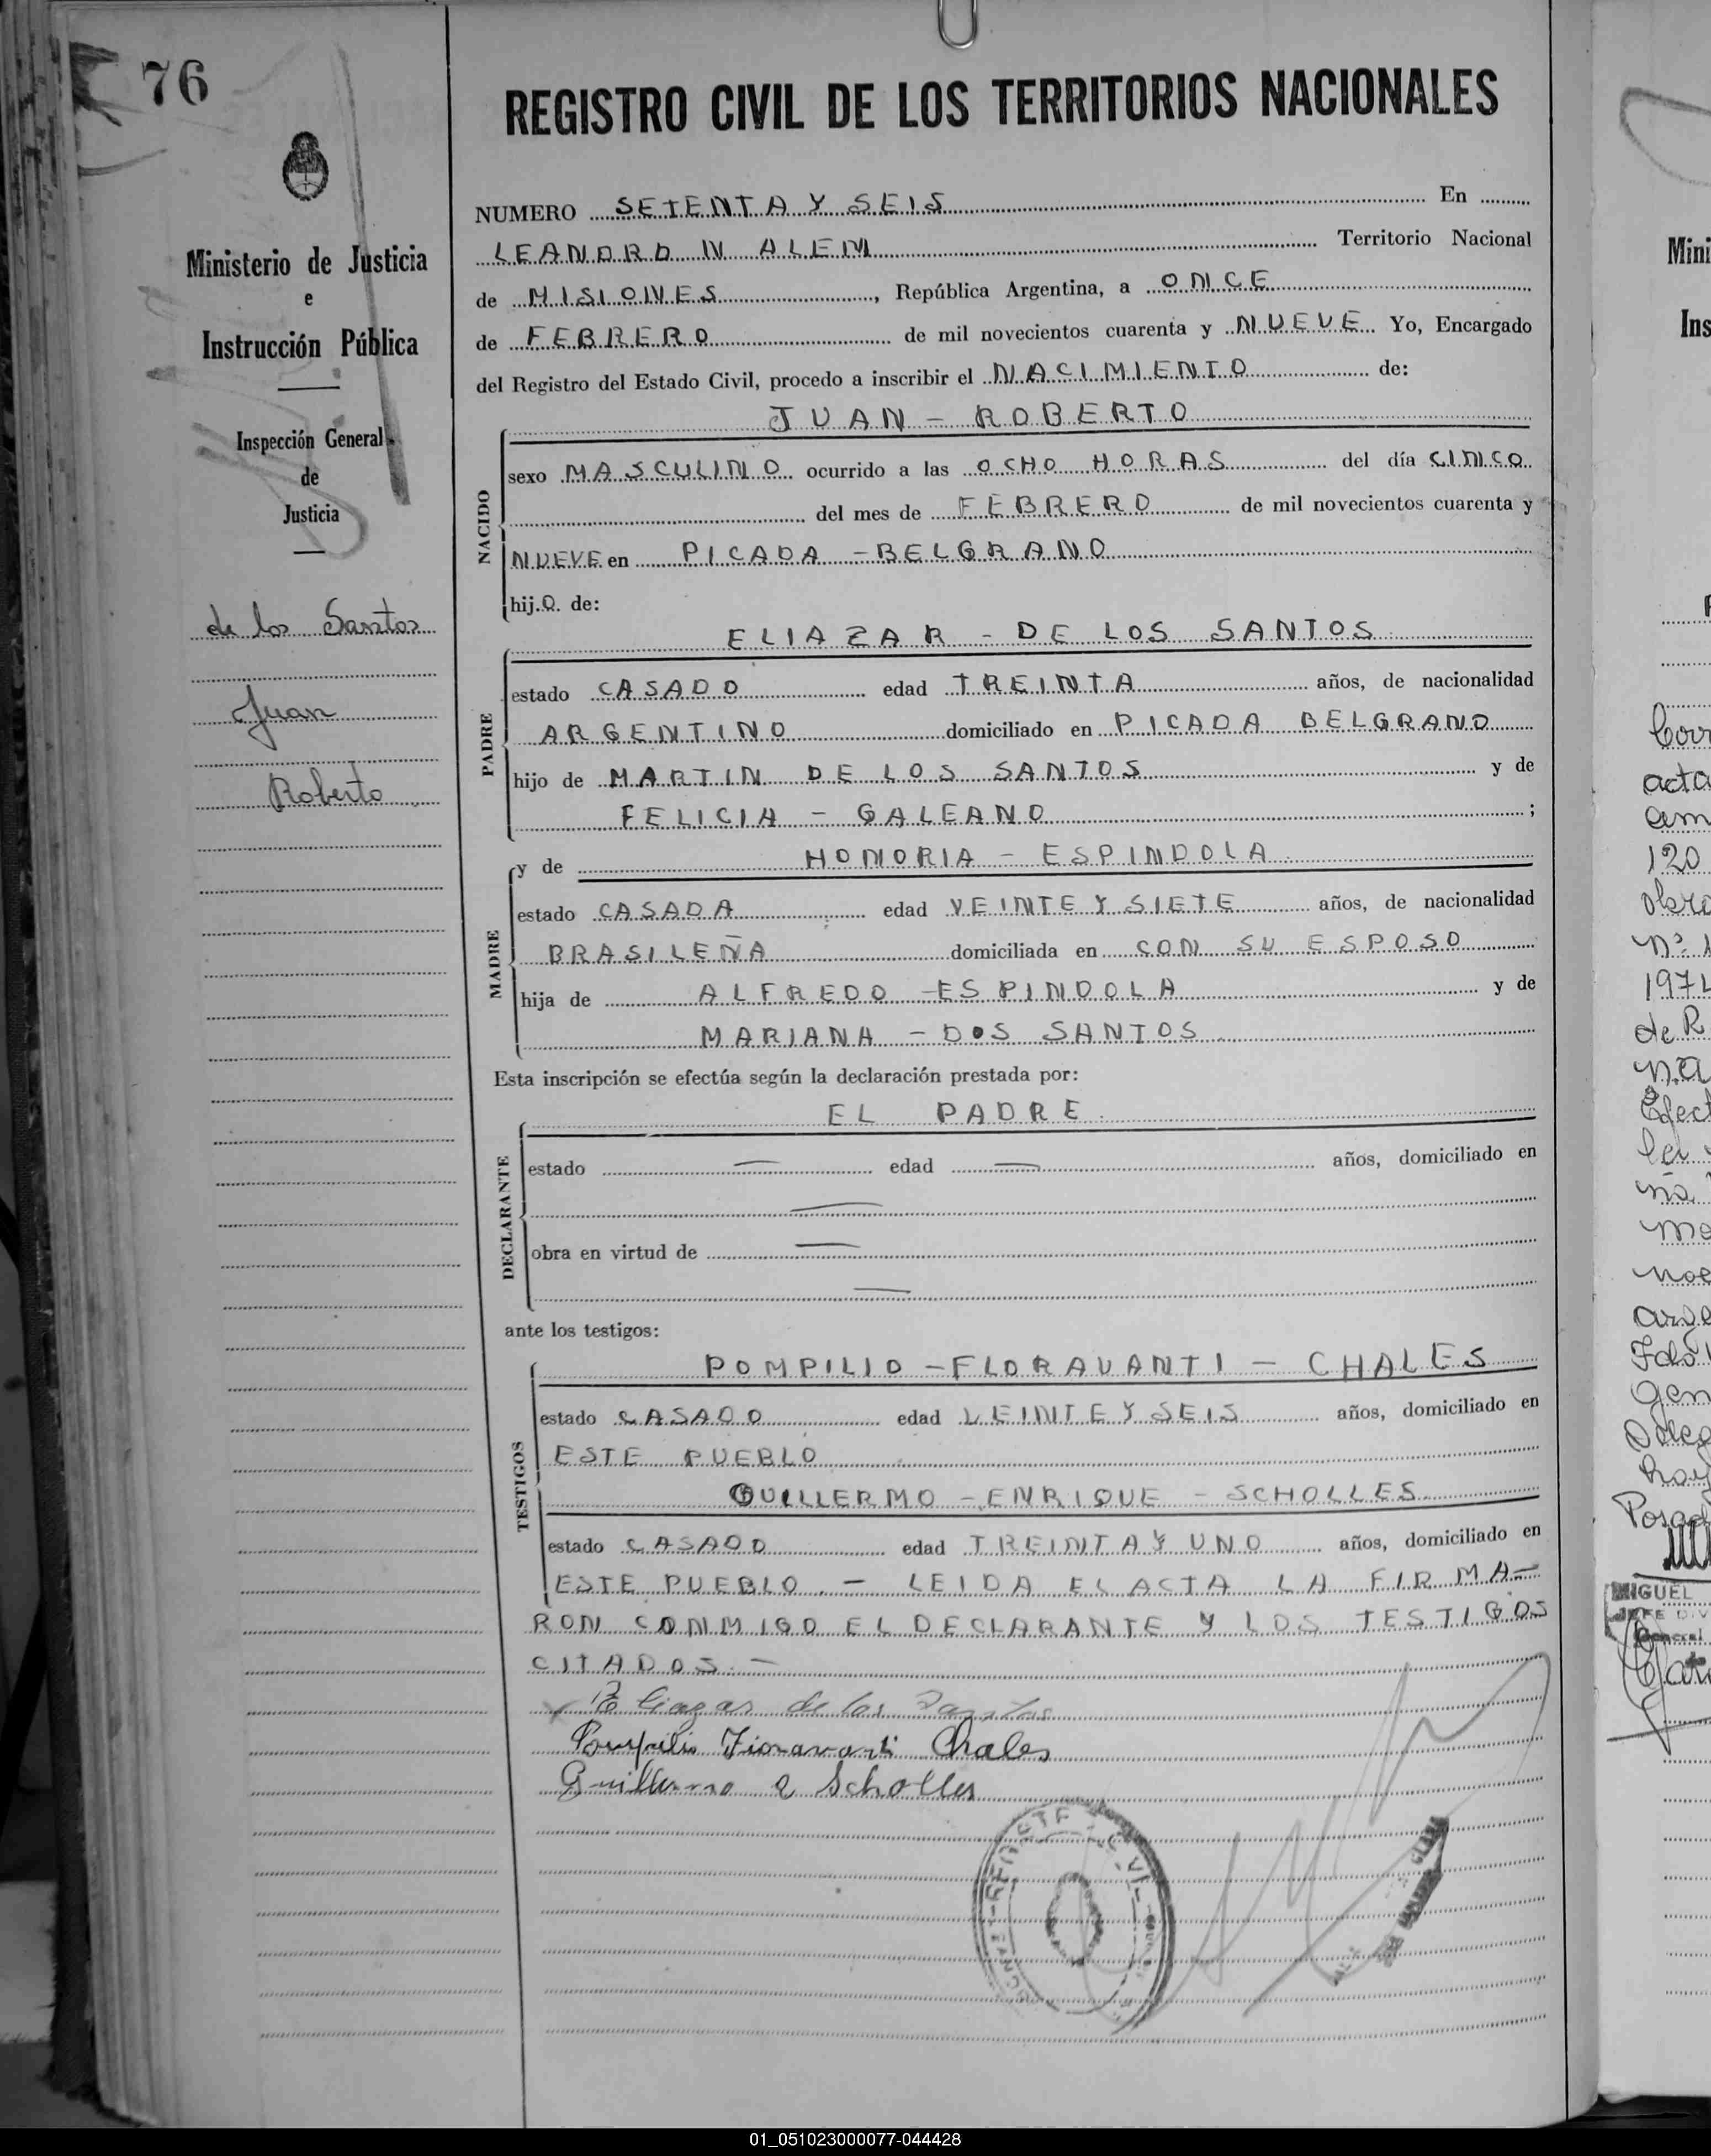 76
REGISTRO CIVIL DE LOS TERRITORIOS NACIONALES
Ministerio de Justicia
e
Instrucción Pública
Inspección General
de
Justicia
de los Santos
Juan
Roberto
NUMERO SETENTA Y SEIS En
LEANDRO N ALEM Territorio Nacional
de MISIONES, República Argentina, a ONCE
de FEBRERO de mil novecientos cuarenta y NUEVE Yo, Encargado
del Registro del Estado Civil, procedo a inscribir el NACIMIENTO de:
JUAN - ROBERTO
NACIDO
sexo MASCULINO ocurrido a las OCHO HORAS del día CINCO
del mes de FEBRERO de mil novecientos cuarenta y
NUEVE en PICADA - BELGRANO
hij.O. de:
ELIAZAR - DE LOS SANTOS
PADRE
estado CASADO edad TREINTA años, de nacionalidad
ARGENTINO domiciliado en PICADA BELGRANO
hijo de MARTIN DE LOS SANTOS y de
FELICIA - GALEANO ;
y de HONORIA - ESPINDOLA
MADRE
estado CASADA edad VEINTE Y SIETE años, de nacionalidad
BRASILEÑA domiciliada en CON SU ESPOSO
hija de ALFREDO - ESPINDOLA y de
MARIANA - DOS SANTOS
Esta inscripción se efectúa según la declaración prestada por:
EL PADRE
DECLARANTE
estado — edad — años, domiciliado en
—
obra en virtud de —
—
ante los testigos:
POMPILIO - FLORAVANTI - CHALES
TESTIGOS
estado CASADO edad VEINTE Y SEIS años, domiciliado en
ESTE PUEBLO
GUILLERMO - ENRIQUE - SCHOLLES
estado CASADO edad TREINTA Y UNO años, domiciliado en
ESTE PUEBLO. - LEIDA EL ACTA LA FIRMA-
RON CONMIGO EL DECLARANTE Y LOS TESTIGOS
CITADOS. -
Eliazar de los Santos
Pompilio Fioravanti Chales
Guillermo E Scholles
Mini
Ins
acta
120
1974
de R
Posad
MIGUEL
JEFE DIV
General
01_051023000077-044428